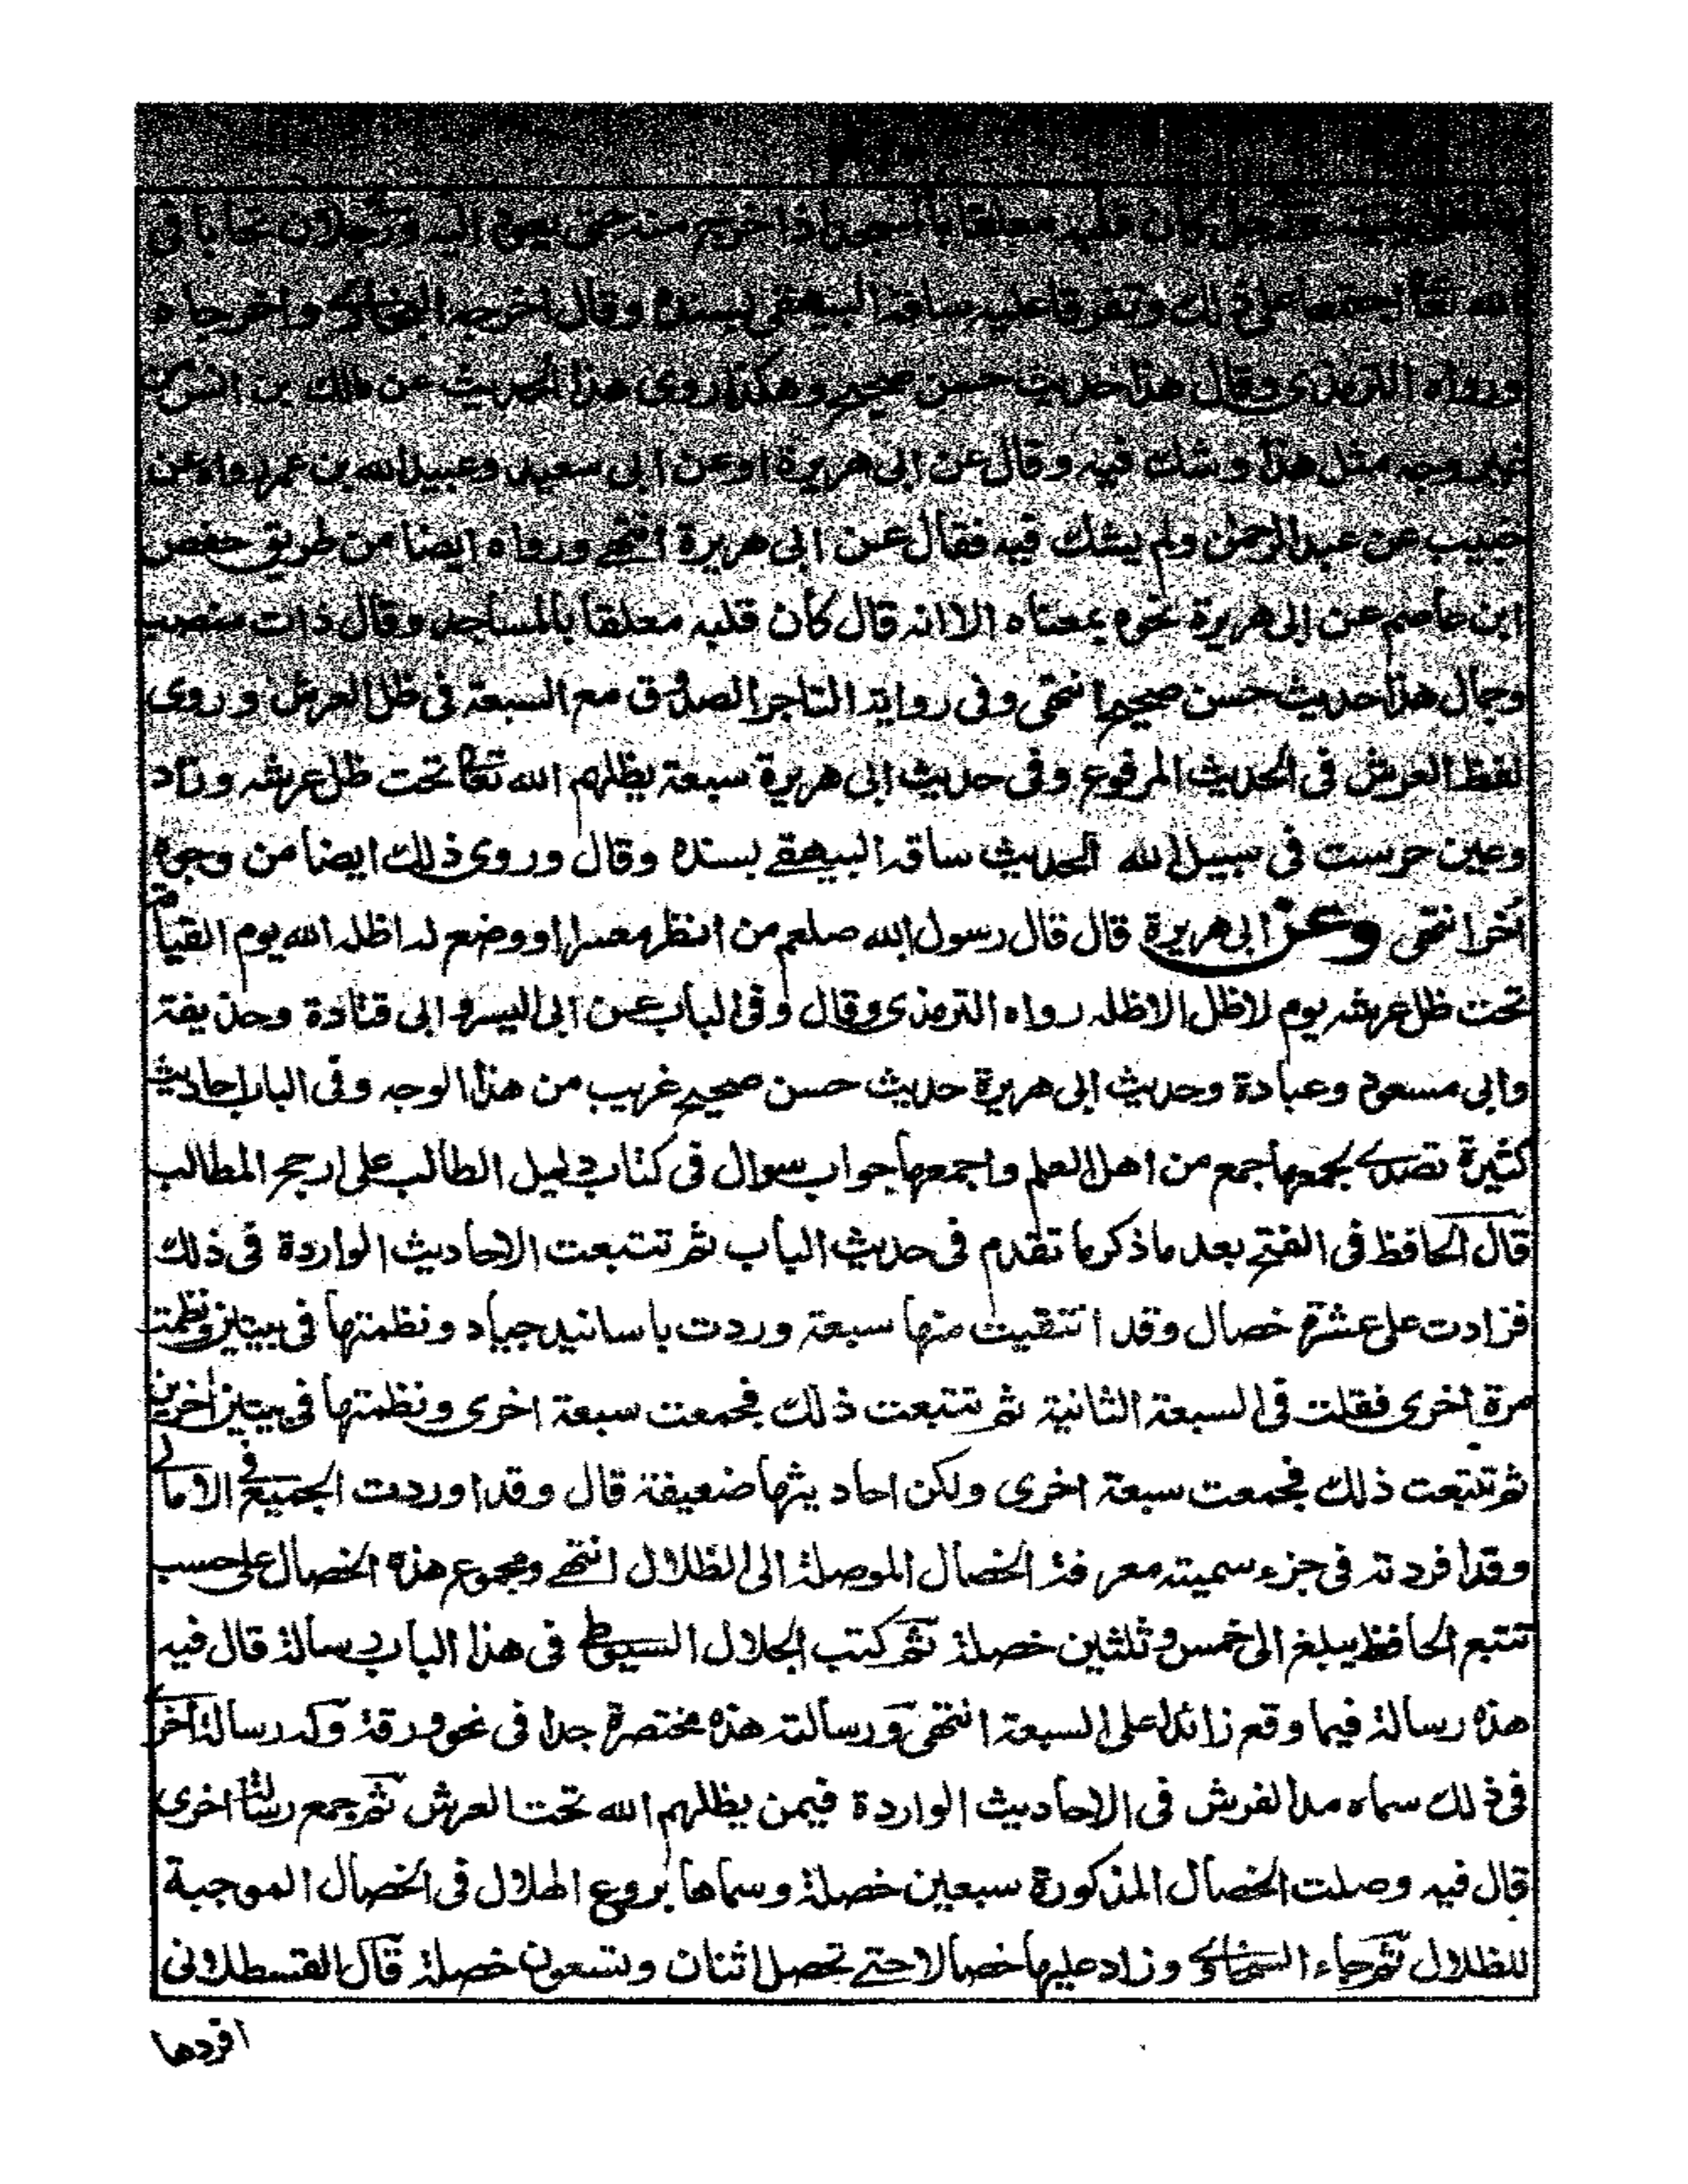 ورجل كان قلبه معلقا بالمسجد اذا خرج منه حتى يعود اليه ورجلان تحابا فى
الله تعا اجتمعا على ذلك وتفرقا عليه ساقه البيهقى بسنده وقال اخرجه البخارى واخرجاه
ورواه الترمذى وقال هذا حديث حسن صحيح وهكذا روى هذا الحديث عن مالك بن انس من
غير وجه مثل هذا وشك فيه وقال عن ابى هريرة او عن ابى سعيد وعبيد الله بن عمر رواه عن
خبيب عن عبد الرحمن ولم يشك فيه فقال عن ابى هريرة انتهى ورواه ايضا من طريق حفص
ابن عاصم عن ابى هريرة نحوه بمعناه الا انه قال كان قلبه معلقا بالمساجد وقال ذات منصب
وجمال هذا حديث حسن صحيح انتهى وفى رواية التاجر الصدوق مع السبعة فى ظل العرش وروى
لفظ العرش فى الحديث المرفوع وفى حديث ابى هريرة سبعة يظلهم الله تعا تحت ظل عرشه وزاد
وعين حرست فى سبيل الله الحديث ساقه البيهقے بسنده وقال وروى ذلك ايضا من وجوه
أخر انتهى وعن ابى هريرة قال قال رسول الله صلعم من انظر معسرا او وضع له اظله الله يوم القيامة
تحت ظل عرشه يوم لا ظل الا ظله رواه الترمذى وقال وفى الباب عن ابى اليسر و ابى قتادة وحذيفة
وابى مسعود وعبادة وحديث ابى هريرة حديث حسن صحيح غريب من هذا الوجه وفى الباب احاديث
كثيرة تصدے لجمعها جمع من اهل العلم واجمعها جواب سوال فى كتاب دليل الطالب على ارجح المطالب
قال الحافظ فى الفتح بعد ما ذكر ما تقدم فى حديث الباب ثم تتبعت الاحاديث الواردة فى ذلك
فزادت على عشرة خصال وقد انتقيت منها سبعة وردت باسانيد جياد ونظمتها فى بيتين ونظمت
مرة أخرى فقلت فى السبعة الثانية ثم تتبعت ذلك فجمعت سبعة اخرى ونظمتها فى بيتين اخرين
ثم تتبعت ذلك فجمعت سبعة اخرى ولكن احاديثها ضعيفة قال وقد اوردت الجميع فى الامالى
وقد افردته فى جزء سميته معرفة الخصال الموصلة الى الظلال انتهے ومجموع هذه الخصال على حسب
تتبع الحافظ يبلغ الى خمس وثلثين خصلة ثم كتب الجلال السيوطے فى هذا الباب رسالة قال فيه
هذه رسالة فيما وقع زائدا على السبعة انتهى ورسالته هذه مختصرة جدا فى نحو ورقة وله رسالة أخرى
فى ذلك سماه مد الفرش فى الاحاديث الواردة فيمن يظلهم الله تحت العرش ثم جمع رسالة اخرى
قال فيه وصلت الخصال المذكورة سبعين خصلة وسماها بزوغ الهلال فى الخصال الموجبة
للظلال ثم جاء السخاوى وزاد عليها خصالا حتے تحصل اثنان وتسعون خصلة قال القسطلانى
افردها